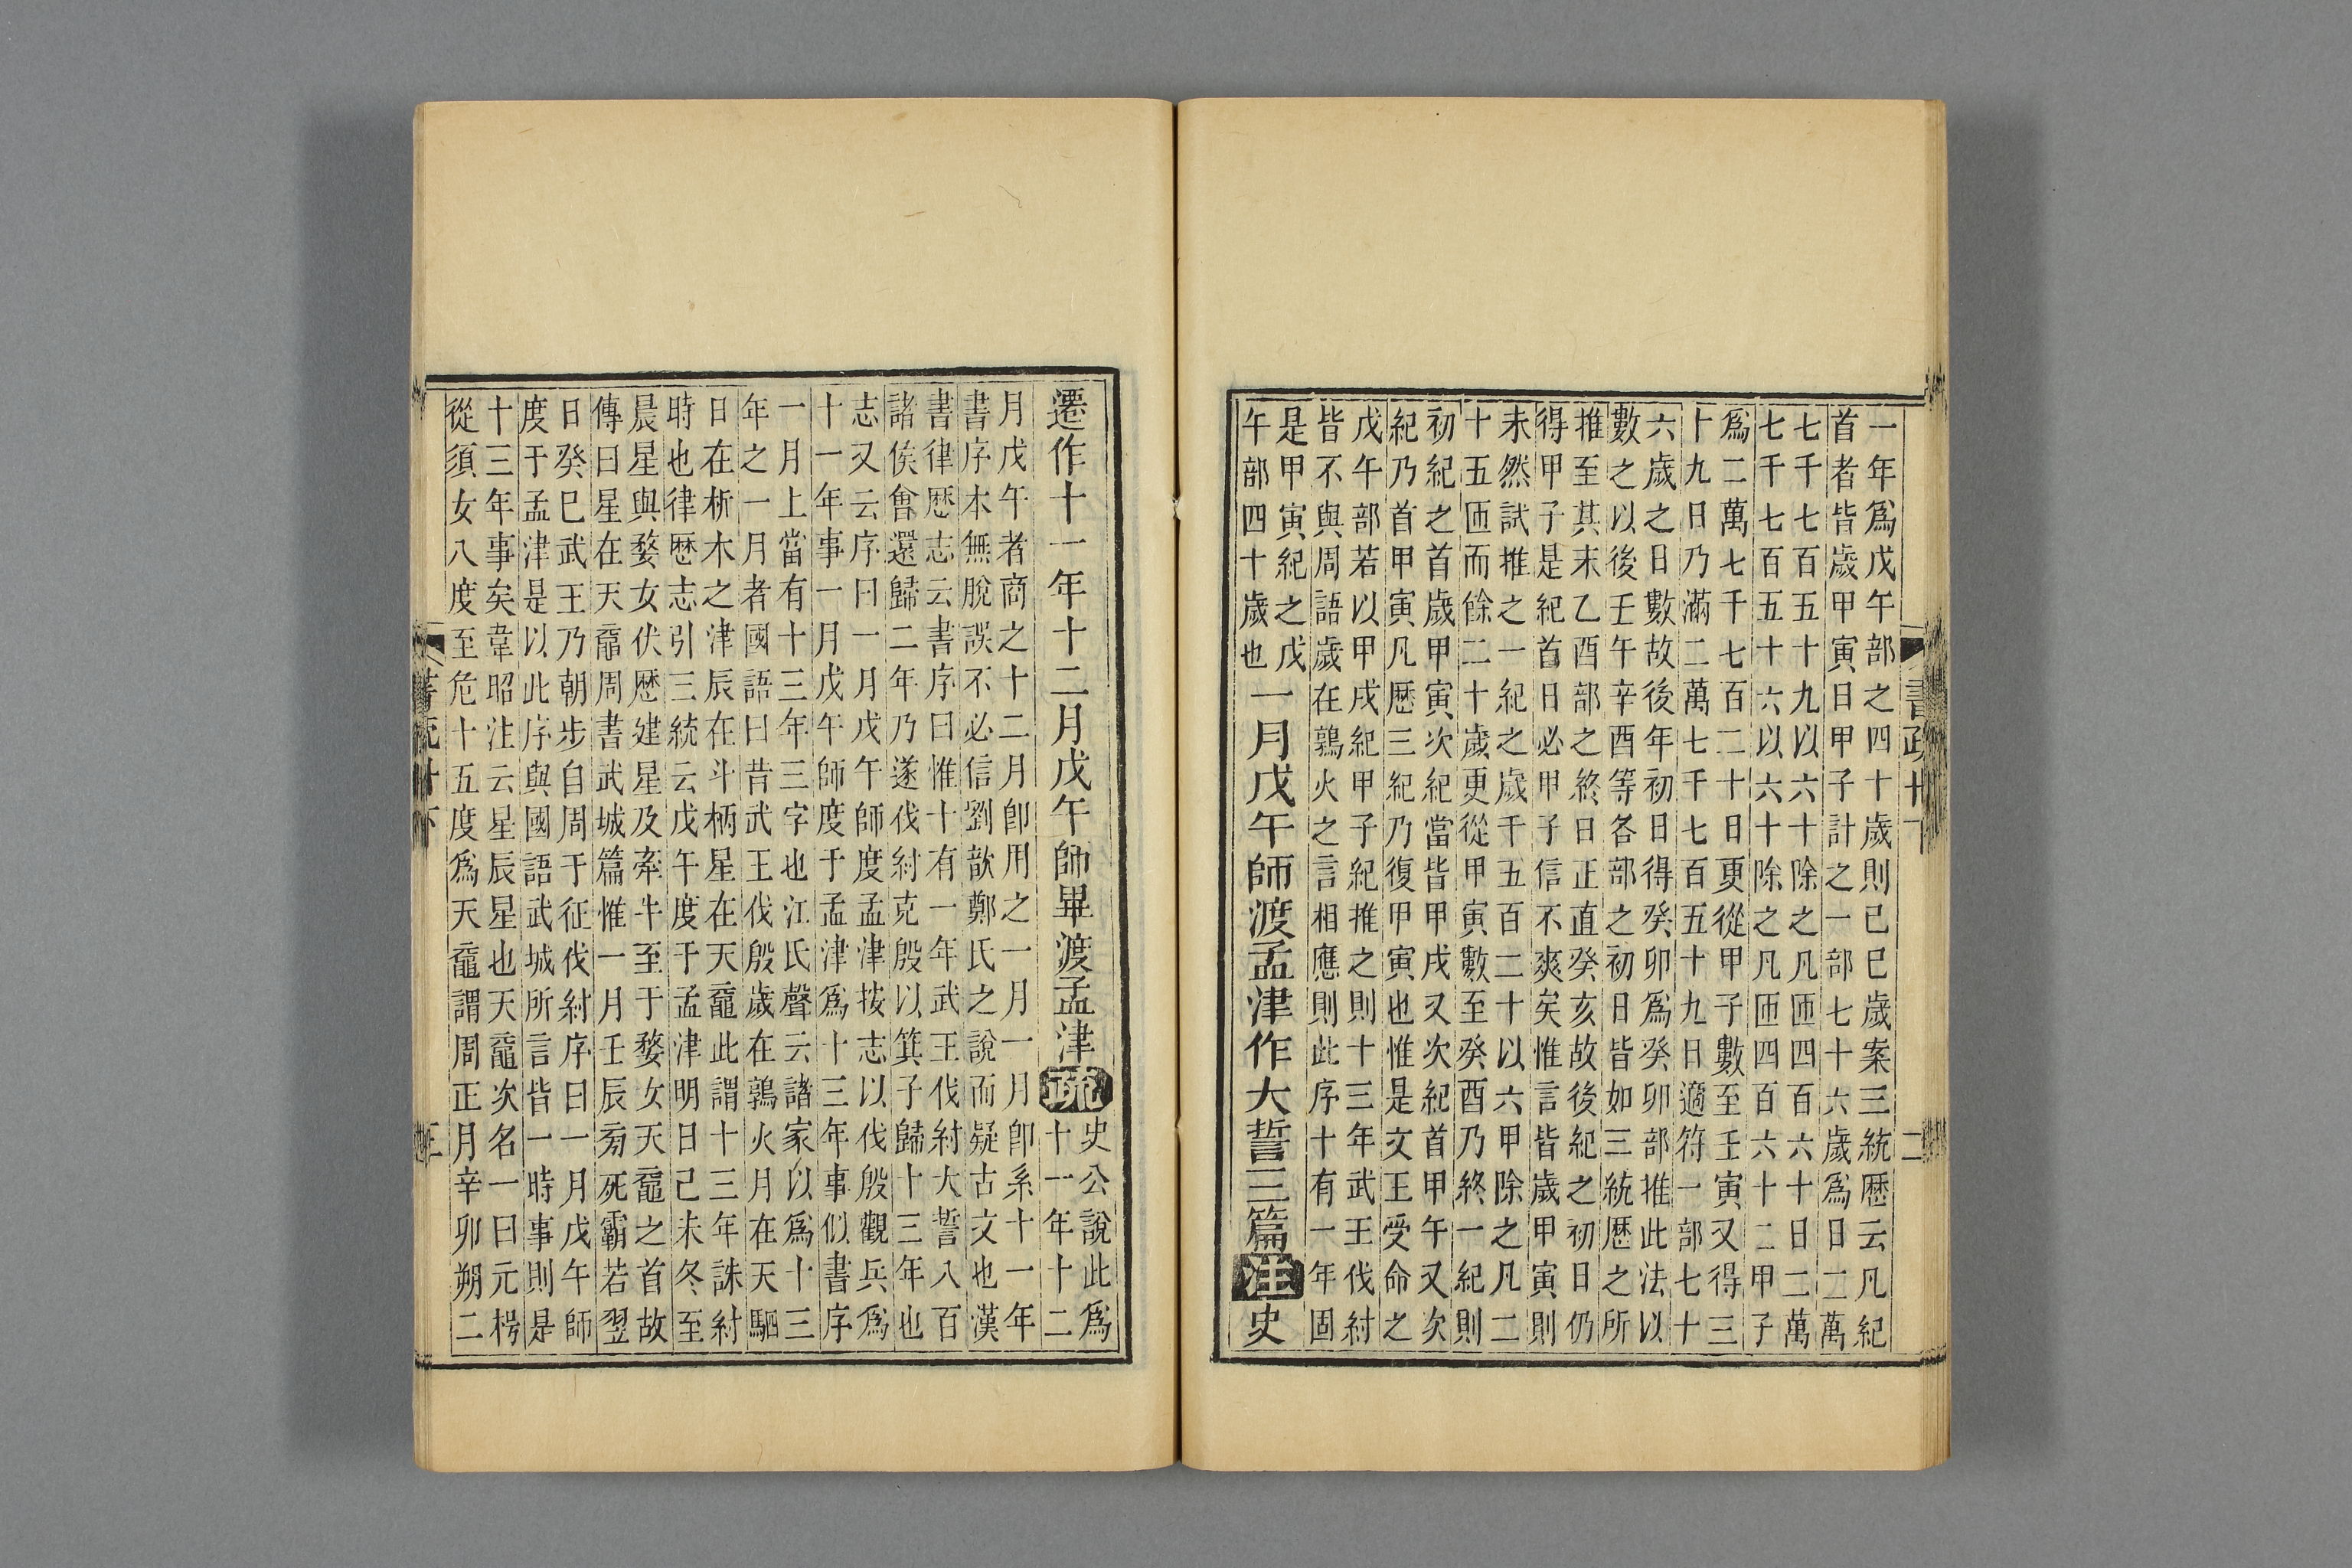 一年爲戊午部之四十歲則已巳歲案三統歷云凡紀
首者皆歲甲寅日甲子計之一部七十六歲爲日二萬
七千七百五十九以六十除之凡匝四百六十日二萬
七千七百五十六以六十除之凡匝四百六十二甲子
爲二萬七千七百二十日更從甲子數至壬寅又得三
十九日乃滿二萬七千七百五十九日適符一部七十
六歲之日數故後年初日得癸卯爲癸卯部推此法以
數之以後壬午辛酉等各部之初日皆如三統歷之所
推至其末乙酉部之終日正直癸亥故後紀之初日仍
得甲子是紀首日必甲子信不爽矣惟言皆歲甲寅則
未然試推之一紀之歲千五百二十以六甲除之凡二
十五匝而餘二十歲更從甲寅數至癸酉乃終一紀則
初紀之首歲甲寅次紀當皆甲戌又次紀首甲午又次
紀乃首甲寅凡歷三紀乃復甲寅也惟是文王受命之
戊午部若以甲戌紀甲子紀推之則十三年武王伐紂
皆不與周語歲在鶉火之言相應則此序十有一年固
是甲寅紀之戊
午部四十歲也一月戊午師渡孟津作大誓三篇注史
書疏卅下
二
遷作十一年十二月戊午師畢渡孟津疏史公說此爲
十一年十二
月戊午者商之十二月卽用之一月一月卽系十一年
書序木無脫誤不必信劉歆鄭氏之說而疑古文也漢
書律歷志云書序曰惟十有一年武王伐紂大誓八百
諸侯會還歸二年乃遂伐紂克殷以箕子歸十三年也
志又云序曰一月戊午師度孟津按志以伐殷觀兵爲
十一年事一月戊午師度于孟津爲十三年事似書序
一月上當有十三年三字也江氏聲云諸家以爲十三
年之一月者國語曰昔武王伐殷歲在鶉火月在天駟
日在析木之津辰在斗柄星在天黿此謂十三年誅紂
時也律歷志引三統云戊午度于孟津明日己未冬至
晨星與婺女伏歷建星及牽牛至于婺女天黿之首故
傳曰星在天黿周書武城篇惟一月壬辰旁死霸若翌
日癸巳武王乃朝步自周于征伐紂序曰一月戊午師
度于孟津是以此序與國語武城所言皆一時事則是
十三年事矣韋昭注云星辰星也天黿次名一曰元枵
從須女八度至危十五度爲天黿謂周正月辛卯朔二